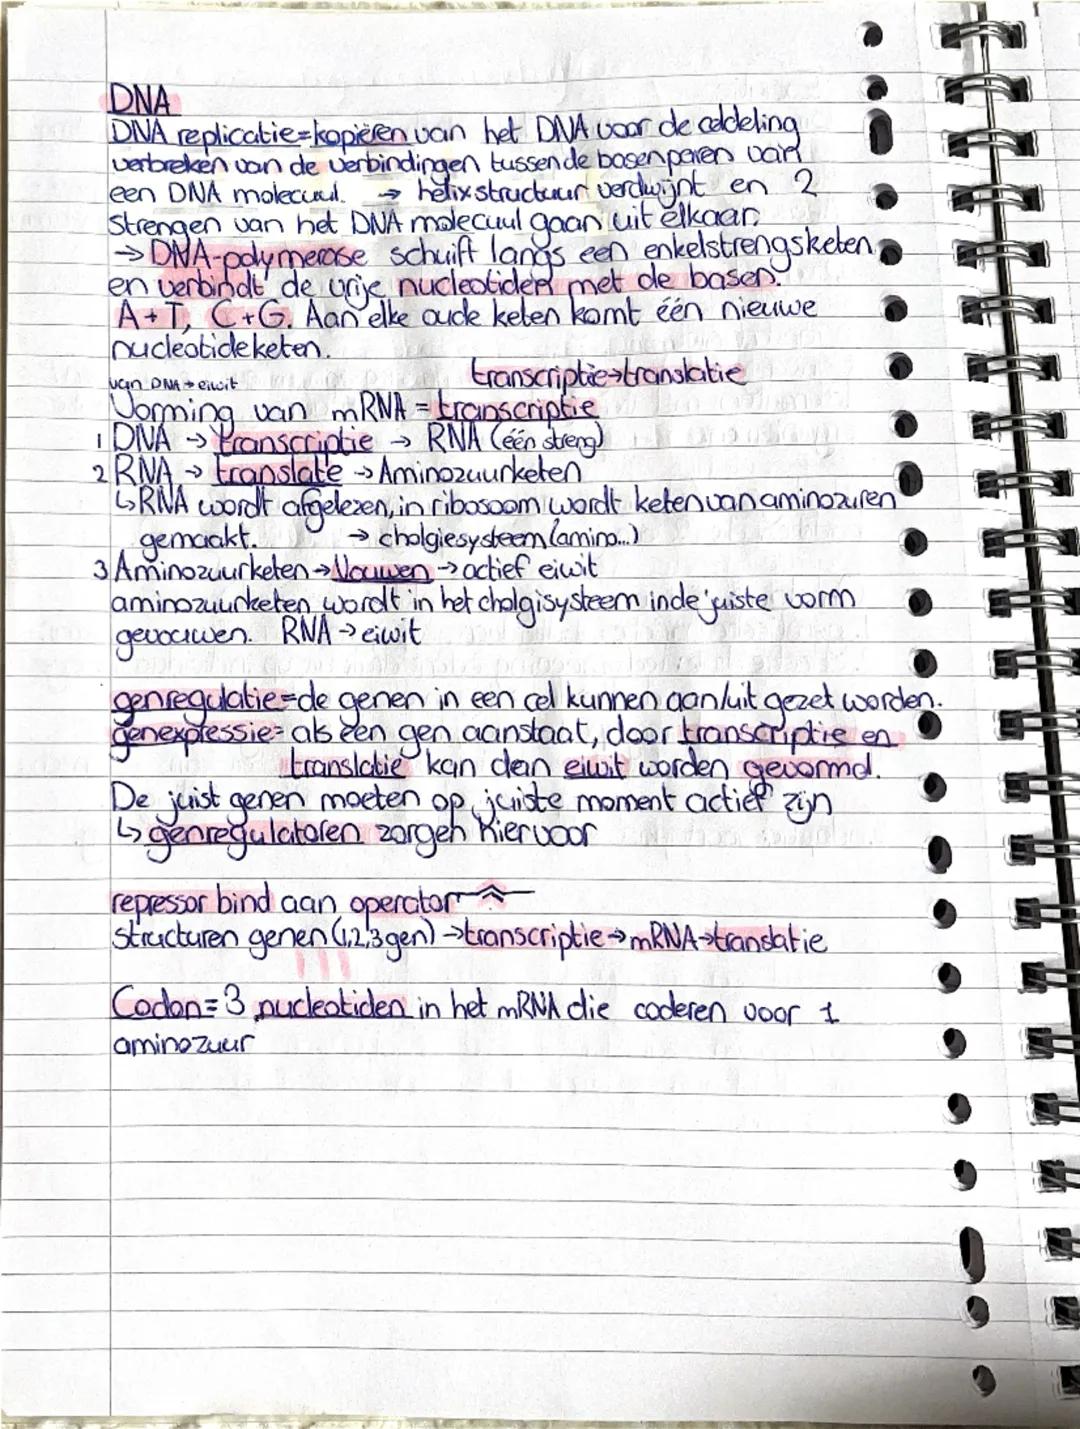 DNA
DNA replicatie=kopiëren van het DNA voor de celdeling
verbreken van de verbindingen tussen de basenparen van
een DNA molecuul. → helixstructuur verdwijnt en 2
strengen van het DNA molecuul gaan uit elkaar.
→ DNA-polymerase schuift langs een enkelstrengsketen
en verbindt de vrije nucleotiden met de basen.
A+T, C+G. Aan elke oude keten komt één nieuwe
nucleotideketen.
van DNA→eiwit transcriptie→translatie
Vorming van mRNA = transcriptie
1 DNA → transcriptie → RNA (één streng)
2 RNA → translatie → Aminozuurketen
↳RNA wordt afgelezen, in ribosoom wordt keten van aminozuren
gemaakt. → cholgiesysteem (amino...)
3 Aminozuurketen→Vouwen→actief eiwit
aminozuurketen wordt in het cholgisysteem in de juiste vorm
gevouwen. RNA→eiwit
genregulatie=de genen in een cel kunnen aan/uit gezet worden.
genexpressie= als een gen aanstaat, door transcriptie en
translatie kan dan eiwit worden gevormd.
De juist genen moeten op juiste moment actief zijn
↳ genregulatoren zorgen hiervoor
repressor bind aan operator
structuren genen (1,2,3 gen) →transcriptie→mRNA→translatie
Codon= 3 nucleotiden in het mRNA die coderen voor 1
aminozuur